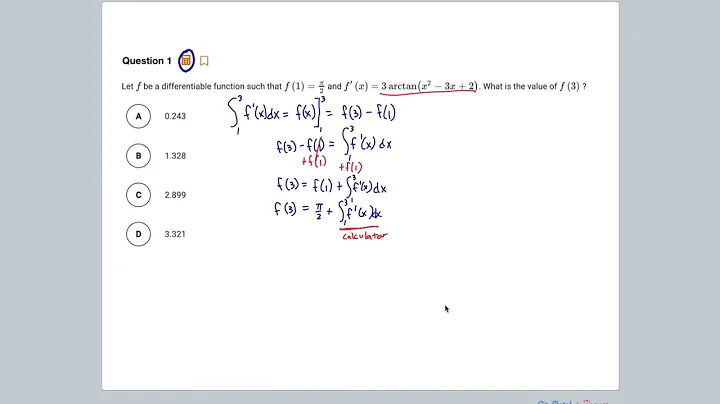 Question 1
Let f be a differentiable function such that f (1) = π/2 and f′ (x) = 3 arctan(x² − 3x + 2). What is the value of f (3) ?
A 0.243
B 1.328
C 2.899
D 3.321
∫₁³ f'(x)dx = f(x)]₁³ = f(3) - f(1)
f(3) - f(1) = ∫₁³ f'(x) dx
+f(1) +f(1)
f(3) = f(1) + ∫₁³ f'(x)dx
f(3) = π/2 + ∫₁³ f'(x)dx
calculator